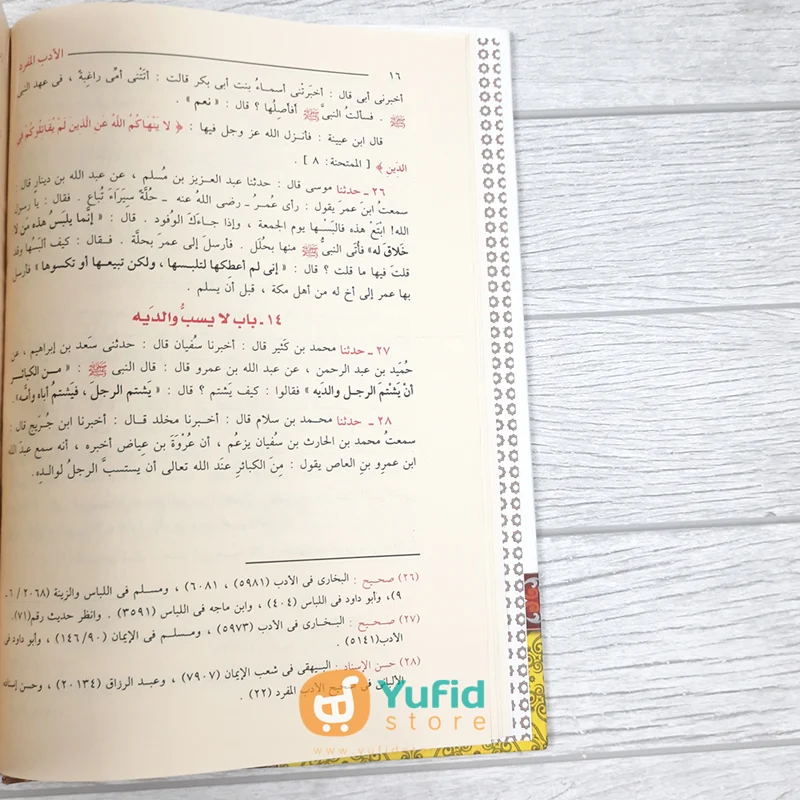 ١٦ الأدب المفرد
أخبرنى أبى قال : أخبَرتْنى أسماءُ بنت أبى بكر قالت : أتَتْنى أمِّى راغِبةً ، فى عهد النبى
ﷺ . فـسألتُ النبىَّ ﷺ أفأصِلُها ؟ قال : « نعم » .
قال ابن عيينة : فأنـزل الله عز وجل فيها : ﴿ لا يَنْهَاكُمُ اللَّهُ عَنِ الَّذِينَ لَمْ يُقَاتِلُوكُمْ فِي
الدِّينِ ﴾ [ الممتحنة : ٨ ] .
٢٦ ـ حدثنا موسى قال : حدثنا عبد العـزيز بن مُسلم ، عن عبد الله بن دينارٍ قال :
سمعتُ ابنَ عمرَ يقول : رأى عُمـرُ ـ رضى اللهُ عنه ـ حُلَّةً سِيَرَاءَ تُباع . فقال : يا رسول
الله! ابْتَعْ هذه فالبَسْها يوم الجمعة ، وإذا جاءَكَ الوُفود . قال : « إنَّما يلبَسُ هذه مَن لا
خَلاقَ له» فأُتى النبىُّ ﷺ منها بحُلَل . فأرسلَ إلى عمرَ بحلَّة . فـقال : كيف ألبَسُها وقد
قلتَ فيها ما قلت ؟ قال : « إنى لم أعطِكها لتلبـسها ، ولكن تبيعـها أو تكسوها » فأرسل
بها عمر إلى أخ له من أهل مكة ، قبل أن يسلم .
١٤ ـ باب لا يسبُّ والديه
٢٧ ـ حدثنا محمد بن كَثير قال : أخبرنا سُفيان قال : حدثنى سَعد بن إبراهيم ، عن
حُمَيد بن عبد الرحمن ، عن عبد الله بن عمرو قال : قال النبى ﷺ : « مـن الكبائـر
أنْ يَشْتمَ الرجـل والديه » فقالوا : كيف يَشتم ؟ قال : « يَشتم الرجلَ ، فيَشتمُ أباه وأمه».
٢٨ ـ حدثنا محمـد بن سلام قال : أخبـرنا مخلد قـال : أخبرنا ابن جُريج قال :
سمعتُ محمد بن الحارث بن سفيان يزعُم ، أن عُرْوَةَ بن عِياض أخبره ، أنه سمع عبدَ الله
ابن عمرو بنِ العاص يقول : مِنَ الكبائرِ عنَد الله تعالى أن يستسبَّ الرجلُ لوالـدِه.
(٢٦) صحيح : البخارى فى الأدب (٥٩٨١) ، ٦٠٨١ ، ومسلم فى اللباس والزينة (٢٠٦٨ /٦-
٩)، وأبو داود فى اللباس (٤٠٤) ، وابن ماجه فى اللباس (٣٥٩١) . وانظر حديث رقم(٧١).
(٢٧) صحيح : البـخارى فى الأدب (٥٩٧٣) ، ومسـلم فى الإيمان (٩٠/ ١٤٦) ، وأبو داود فى
الأدب (٥١٤١) .
(٢٨) حسن الإسناد : البيهقى فى شعب الإيمان (٧٩٠٧) ، وعبـد الرزاق (٢٠١٣٤) ، وحسن إسناده
الألبانى فى صحيح الأدب المفرد (٢٢) .
Yufid
store